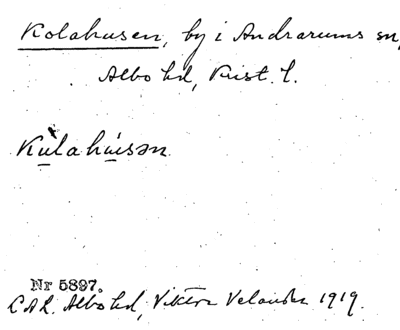 Kolahusen, by i Andrarums sn,
Albo hd, Krist. l.
Kùlahúisən
Nr 5897.
C.A.L. Albo hd, Viktor Velander 1919.